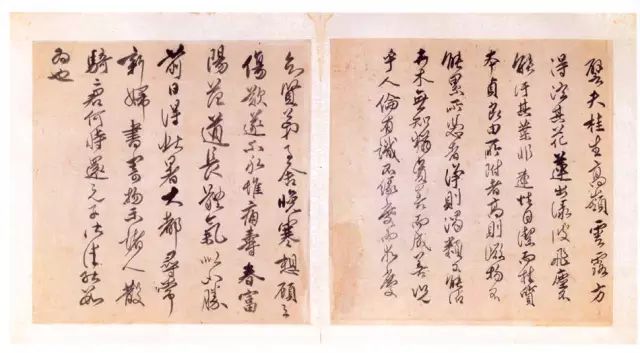 譬夫桂生高嶺雲露方
得泫其花蓮出淥波飛塵不
能汙其葉非蓮性自潔而桂質
本貞良由所附者高則微物不
能累所憑者淨則濁類不能沾
卉木無知猶資善而成善況
乎人倫有識不緣慶而求慶
賢弟子舍晚寒想顧
傷歎遂不永惟痛壽春富
陽范道長體氣以勝
前日得此暑大都尋常
新婦書物諸人散
騎君何時還兄子
為也